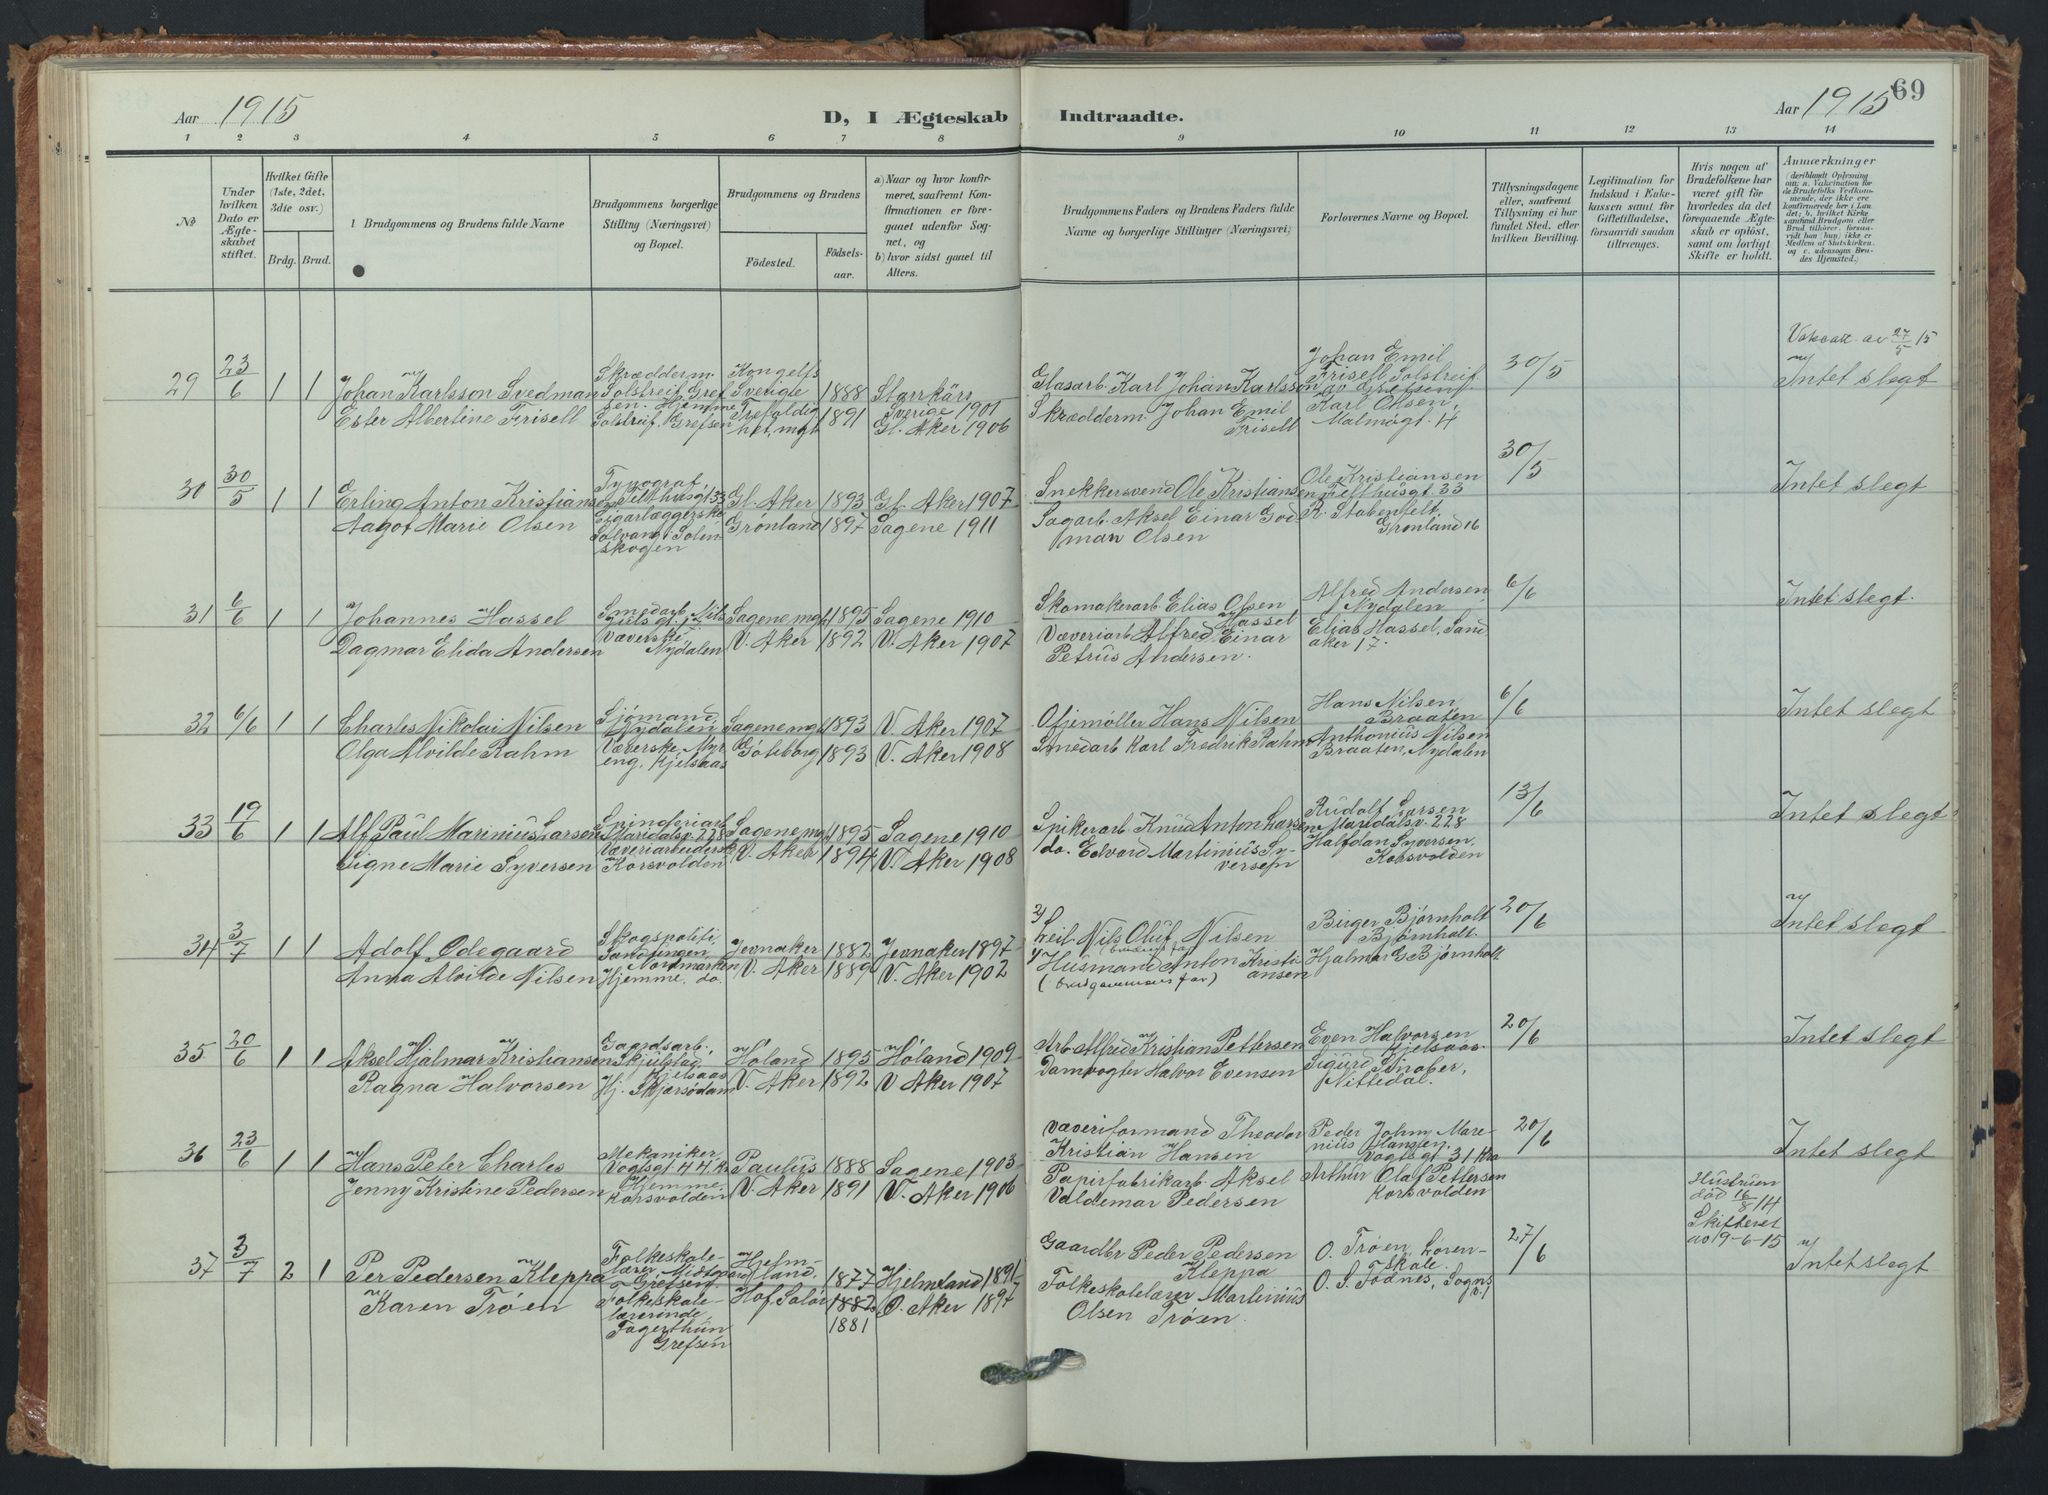 69
Aar 1915
D, I Ægteskab Indtraadte.
Aar 1915
1 2 3 4 5 6 7 8 9 10 11 12 13 14
№
Under hvilken Dato er Ægteskabet stiftet.
Hvilket Gifte (1ste, 2det, 3die osv.)
Brdg. Brud.
Brudgommens og Brudens fulde Navne
Brudgommens borgerlige Stilling (Næringsvei) og Bopæl.
Brudgommens og Brudens
Födested.
Födselsaar.
a) Naar og hvor konfirmeret, saafremt Konfirmationen er foregaaet udenfor Sognet, og
b) hvor sidst gaaet til Alters.
Brudgommens Faders og Brudens Faders fulde Navne og borgerlige Stillinger (Næringsvei)
Forlovernes Navne og Bopæl.
Tillysningsdagene eller, saafremt Tillysning ei har fundet Sted, efter hvilken Bevilling.
Legitimation for Indskud i Enkekassen samt for Giftetilladelse, forsaavidt saadan tiltrænges.
Hvis nogen af Brudefolkene har været gift för hvorledes da det foregaaende Ægteskab er oplöst, samt om lovligt Skifte er holdt.
Anmærkninger
29 23/6 1 1
Johan Karlsson Svedman
Ester Albertine Frisell
Skrædderm. Solstreif Grefsen. Hjemme Solstreif, Grefsen
Kongelfs Sverige
Trefoldighet, mgt
1888
1891
Starrkärr Sverige 1901
Gl. Aker 1906
Glasarb. Karl Johan Karlsson
Skrædderm. Johan Emil Frisell
Johan Emil Frisell Solstreif
Karl Olsen, Malmøgt. 4
30/5
27/5 15
Intet slegt
30 30/5 1 1
Erling Anton Kristiansen
Aagot Marie Olsen
Typograf Felthusgt 33
Solvang, Solemskogen
Gl. Aker
Grønland
1893
1897
Gl. Aker 1907
Sagene 1911
Snekkersvend Ole Kristiansen
Sagarb. Aksel Einar Godman Olsen
Ole Kristiansen Felthusgt. 33
R. Stabenfelt Grønland 16
30/5
Intet slegt
31 6/6 1 1
Johannes Hassel
Dagmar Elida Andersen
Smedarb.
Væverske, Nydalen
Sagene mgh
V. Aker
1895
1892
Sagene 1910
V. Aker 1907
Skomakerarb. Elias Olsen Hassel
Væveriarb Alfred Einar Petrus Andersen.
Alfred Andersen Nydalen
Elias Hassel, Sandaker 17.
6/6
Intet slegt.
32 6/6 1 1
Charles Nikolai Nilsen
Olga Alvilde Rahm
Sjømand Nydalen
Væverske Myreng, Kjelsaas
Sagene mgh
Göteborg
1893
1893
V. Aker 1907
V. Aker 1908
Oljemøller Hans Nilsen
Smedarb Karl Fredrik Rahm
Hans Nilsen Braaten
Anthonius Nilsen Braaten, Nydalen
6/6
Intet slegt
33 19/6 1 1
Alf Paul Marinius Larsen
Signe Marie Syversen
Spinderiarb Maridalsv. 228
Væveriarbeiderske Korsvolden
Sagene mgh
V. Aker
1895
1894
Sagene 1910
V. Aker 1908
Spikerarb Knud Anton Larsen
do. Edvard Martinius Syversen
Rudolf Larsen Maridalsv. 228
Halfdan Syversen, Korsvolden
13/6
Intet slegt
34 3/7 1 1
Adolf Ødegaard
Anna Alvilde Nilsen
Skogspoliti, Sandungen Nordmarken
Hjemme. do.
Jevnaker
V. Aker
1882
1889
Jevnaker 1897
V. Aker 1902
2) Leil. Nils Oluf Nilsen
(brudens far)
1) Husmand Anton Kristiansen
(brudgommens far)
Birger Bjørnholt Bjørnholt.
Hjalmar G Bjørnholt
20/6
Intet slegt
35 20/6 1 1
Aksel Hjalmar Kristiansen
Ragna Halvorsen
Gaardsarb. Skjulstad, Kjelsaas
Hj. Skjærsødam
Høland
V. Aker
1895
1892
Høland 1909
V Aker 1907
Arb. Alfred Kristian Pettersen
Damvogter Halvor Evensen
Even Halvorsen Kjelsaas
Sigurd Sinober, Nittedal.
20/6
Intet slegt
36 23/6 1 1
Hans Peter Charles
Jenny Kristine Pedersen
Mekaniker. Vogtsgt. 44 Kr.
Hjemme. Korsvolden
Paulus
V. Aker
1888
1891
Sagene 1903
V. Aker 1906
Væveriformand Theodor Kristian Hansen
Papirfabrikarb Aksel Valdemar Pedersen
Peder Johm Marenius Hansen. Vogtsgt 31 Kra
Arthur Olaf Pettersen Korsvolden
20/6
Intet slegt
37 3/7 2 1
Per Pedersen Kleppa
Karen Trøen
Folkeskolelærer Midtgaard Grefsen
Folkeskolelærerinde Fagerthun Grefsen
Hjelmeland.
Hof Solør
1877
1882
1881
Hjelmeland 1891
Ø. Aker 1897
Gaardbr Peder Pedersen Kleppa
Folkeskolelærer Martinius Olsen Trøen.
O. Trøen, Lørenskole.
O. S. Fodnes, Sogns
27/6
Hustruen død 16/8 14
Skifteret av 19-6-15
Intet slegt